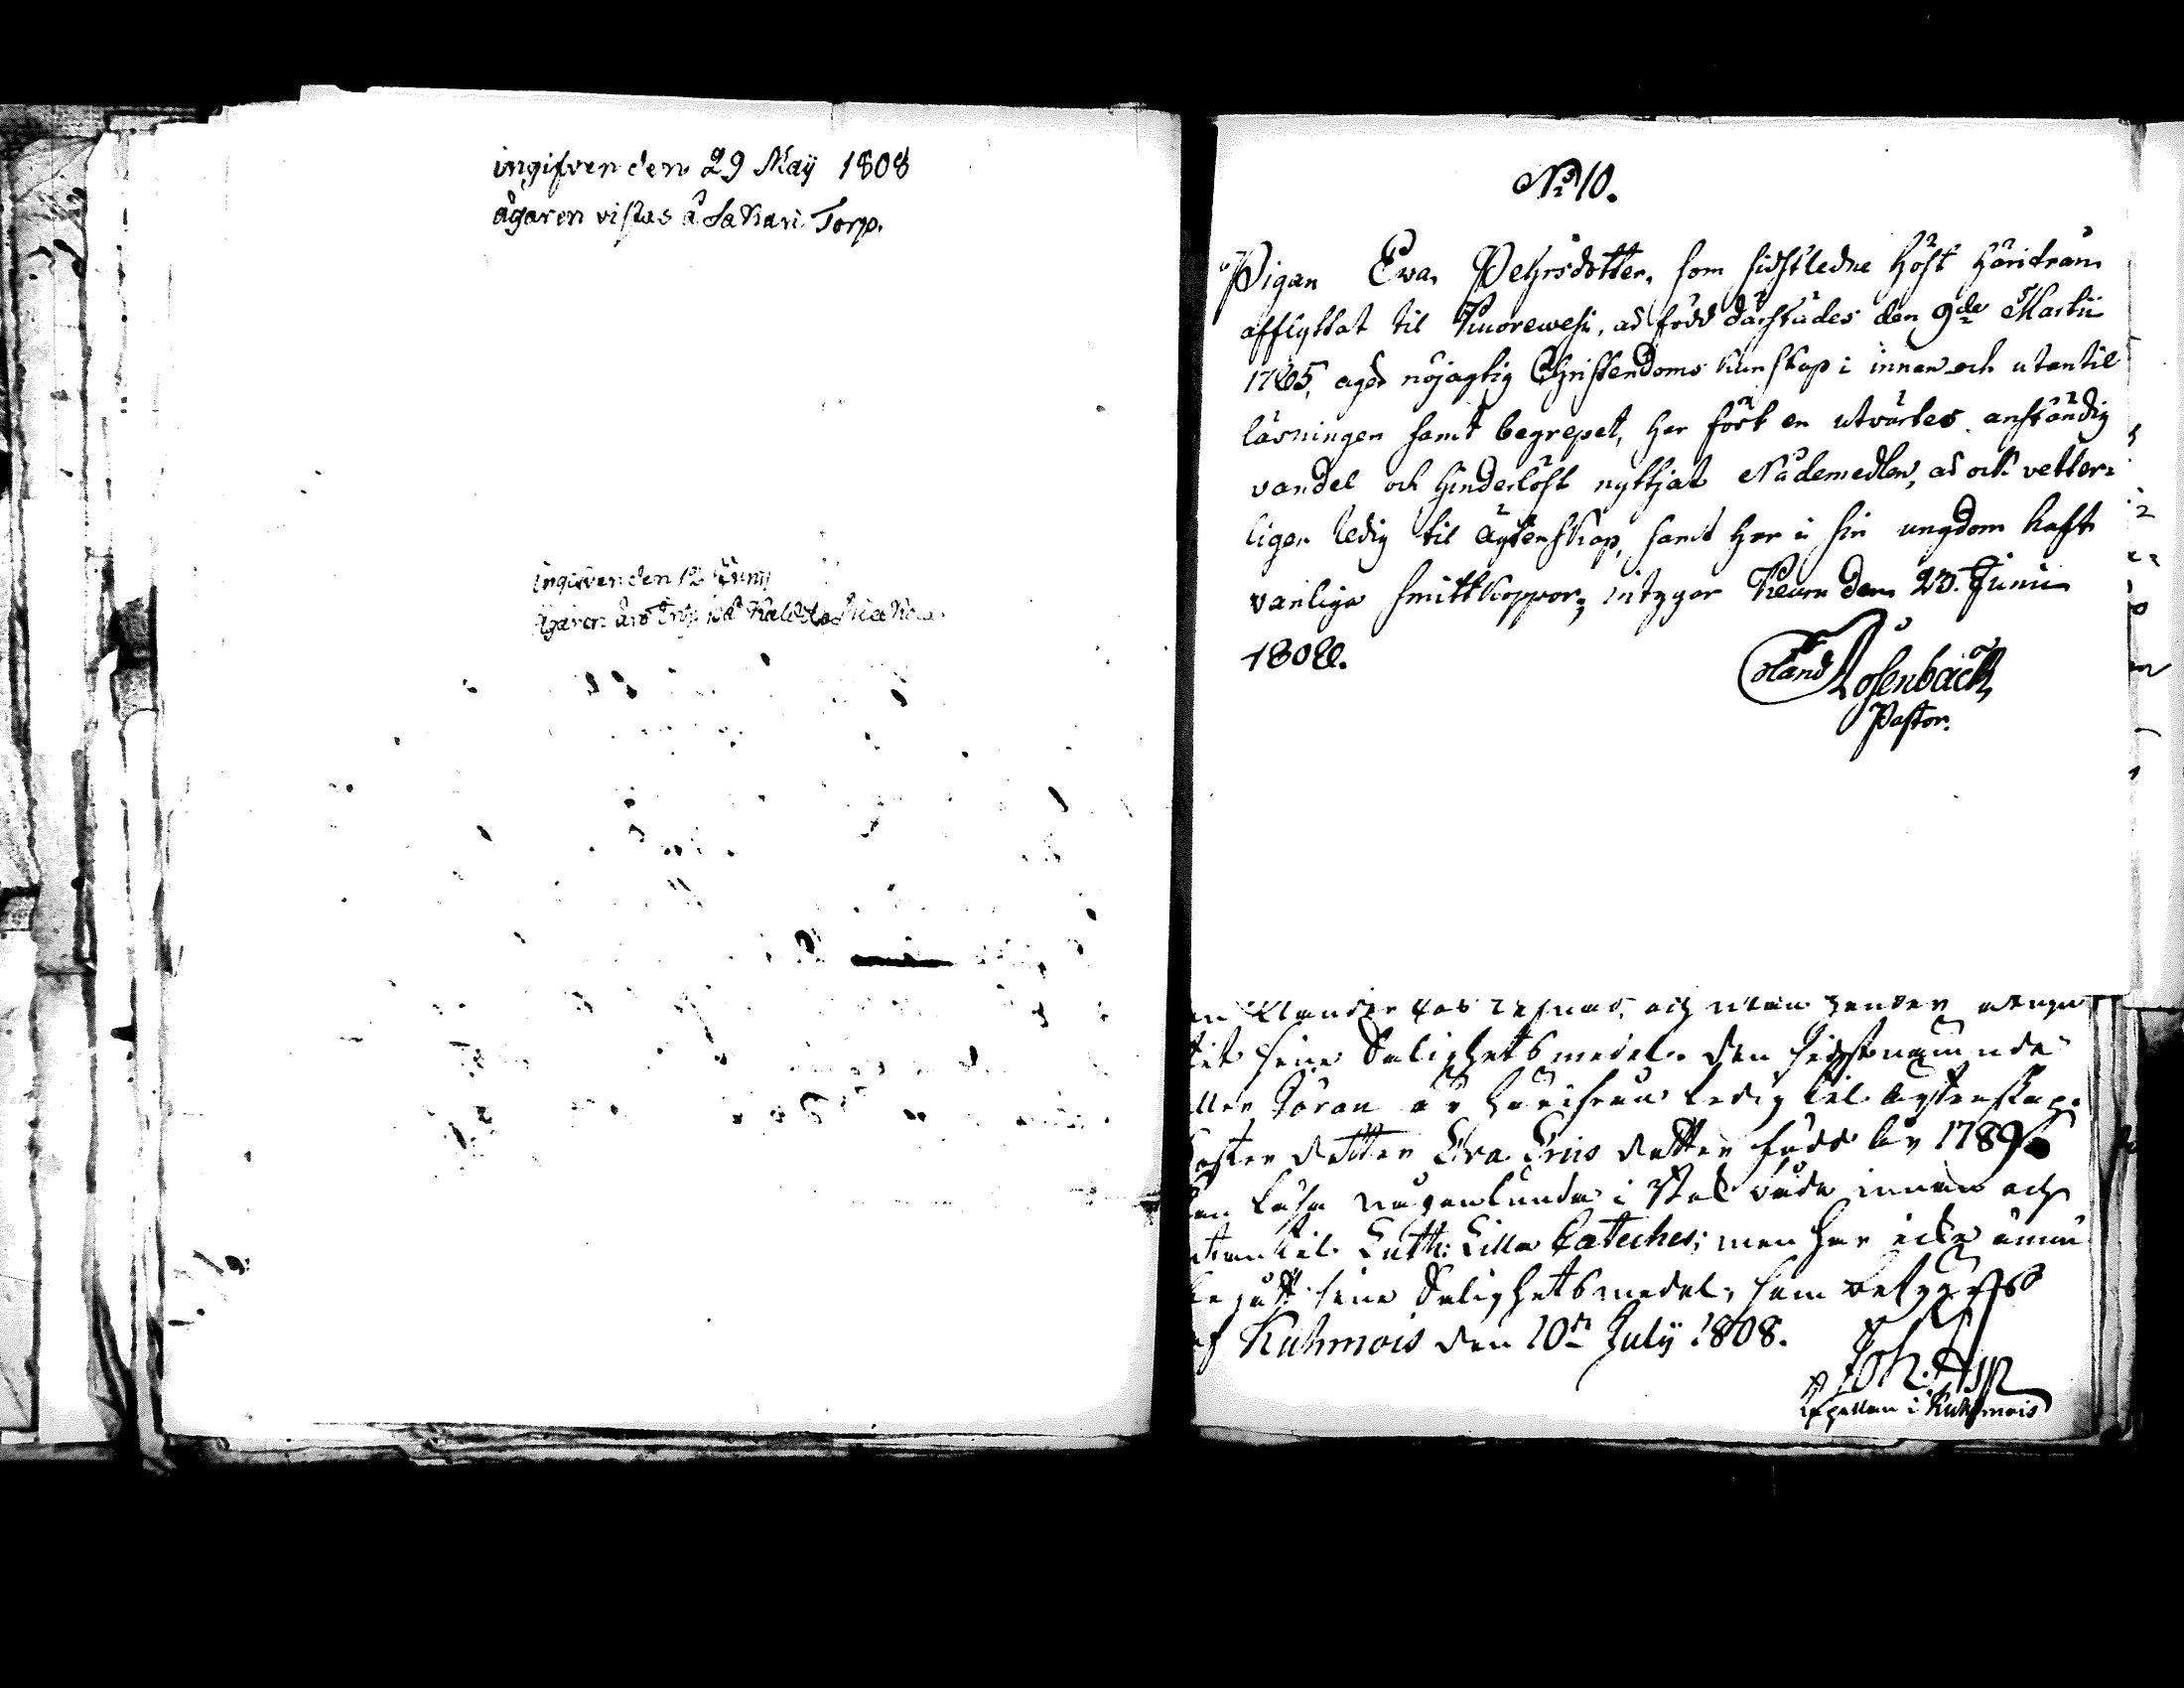 ingifven den 29 Maij 1808
ägaren vistas å Sakari Torp.
ingifven den 12 Junij
Ägaren
No 10.
Pigan Eva Pehrsdotter, som sidstledne höst härifrån
afflyttat til Kuorewesi, är född därstädes den 9de Martii
1765, äger nöjagtig Christendoms kunskap i innan och utantil
läsningen samt begrepet, har fört en utvärtes anständig
vandel och hinderlöst nyttjat Nådemedlen, är ock vetter-
ligen ledig til ägtenskap, samt har i sin ungdom haft
vanliga smittkoppor, intygar Keuru den 23. Junii
1808.
Rosenback
Pastor.
och utan
sine Salighets medel. Den sidstnämnde
Göran är härifrån ledig til ägtenskap.
dotter Eva Eriis dotter född år 1789
läsa någorlunda i Stafvade innan och
utantil Luth: Lilla Cateches; men har icke ännu
begått sine Salighets medel; som betygas
af Kuhmois den 10de Julij 1808.
Joh. Asp
Capellan i Kuhmois